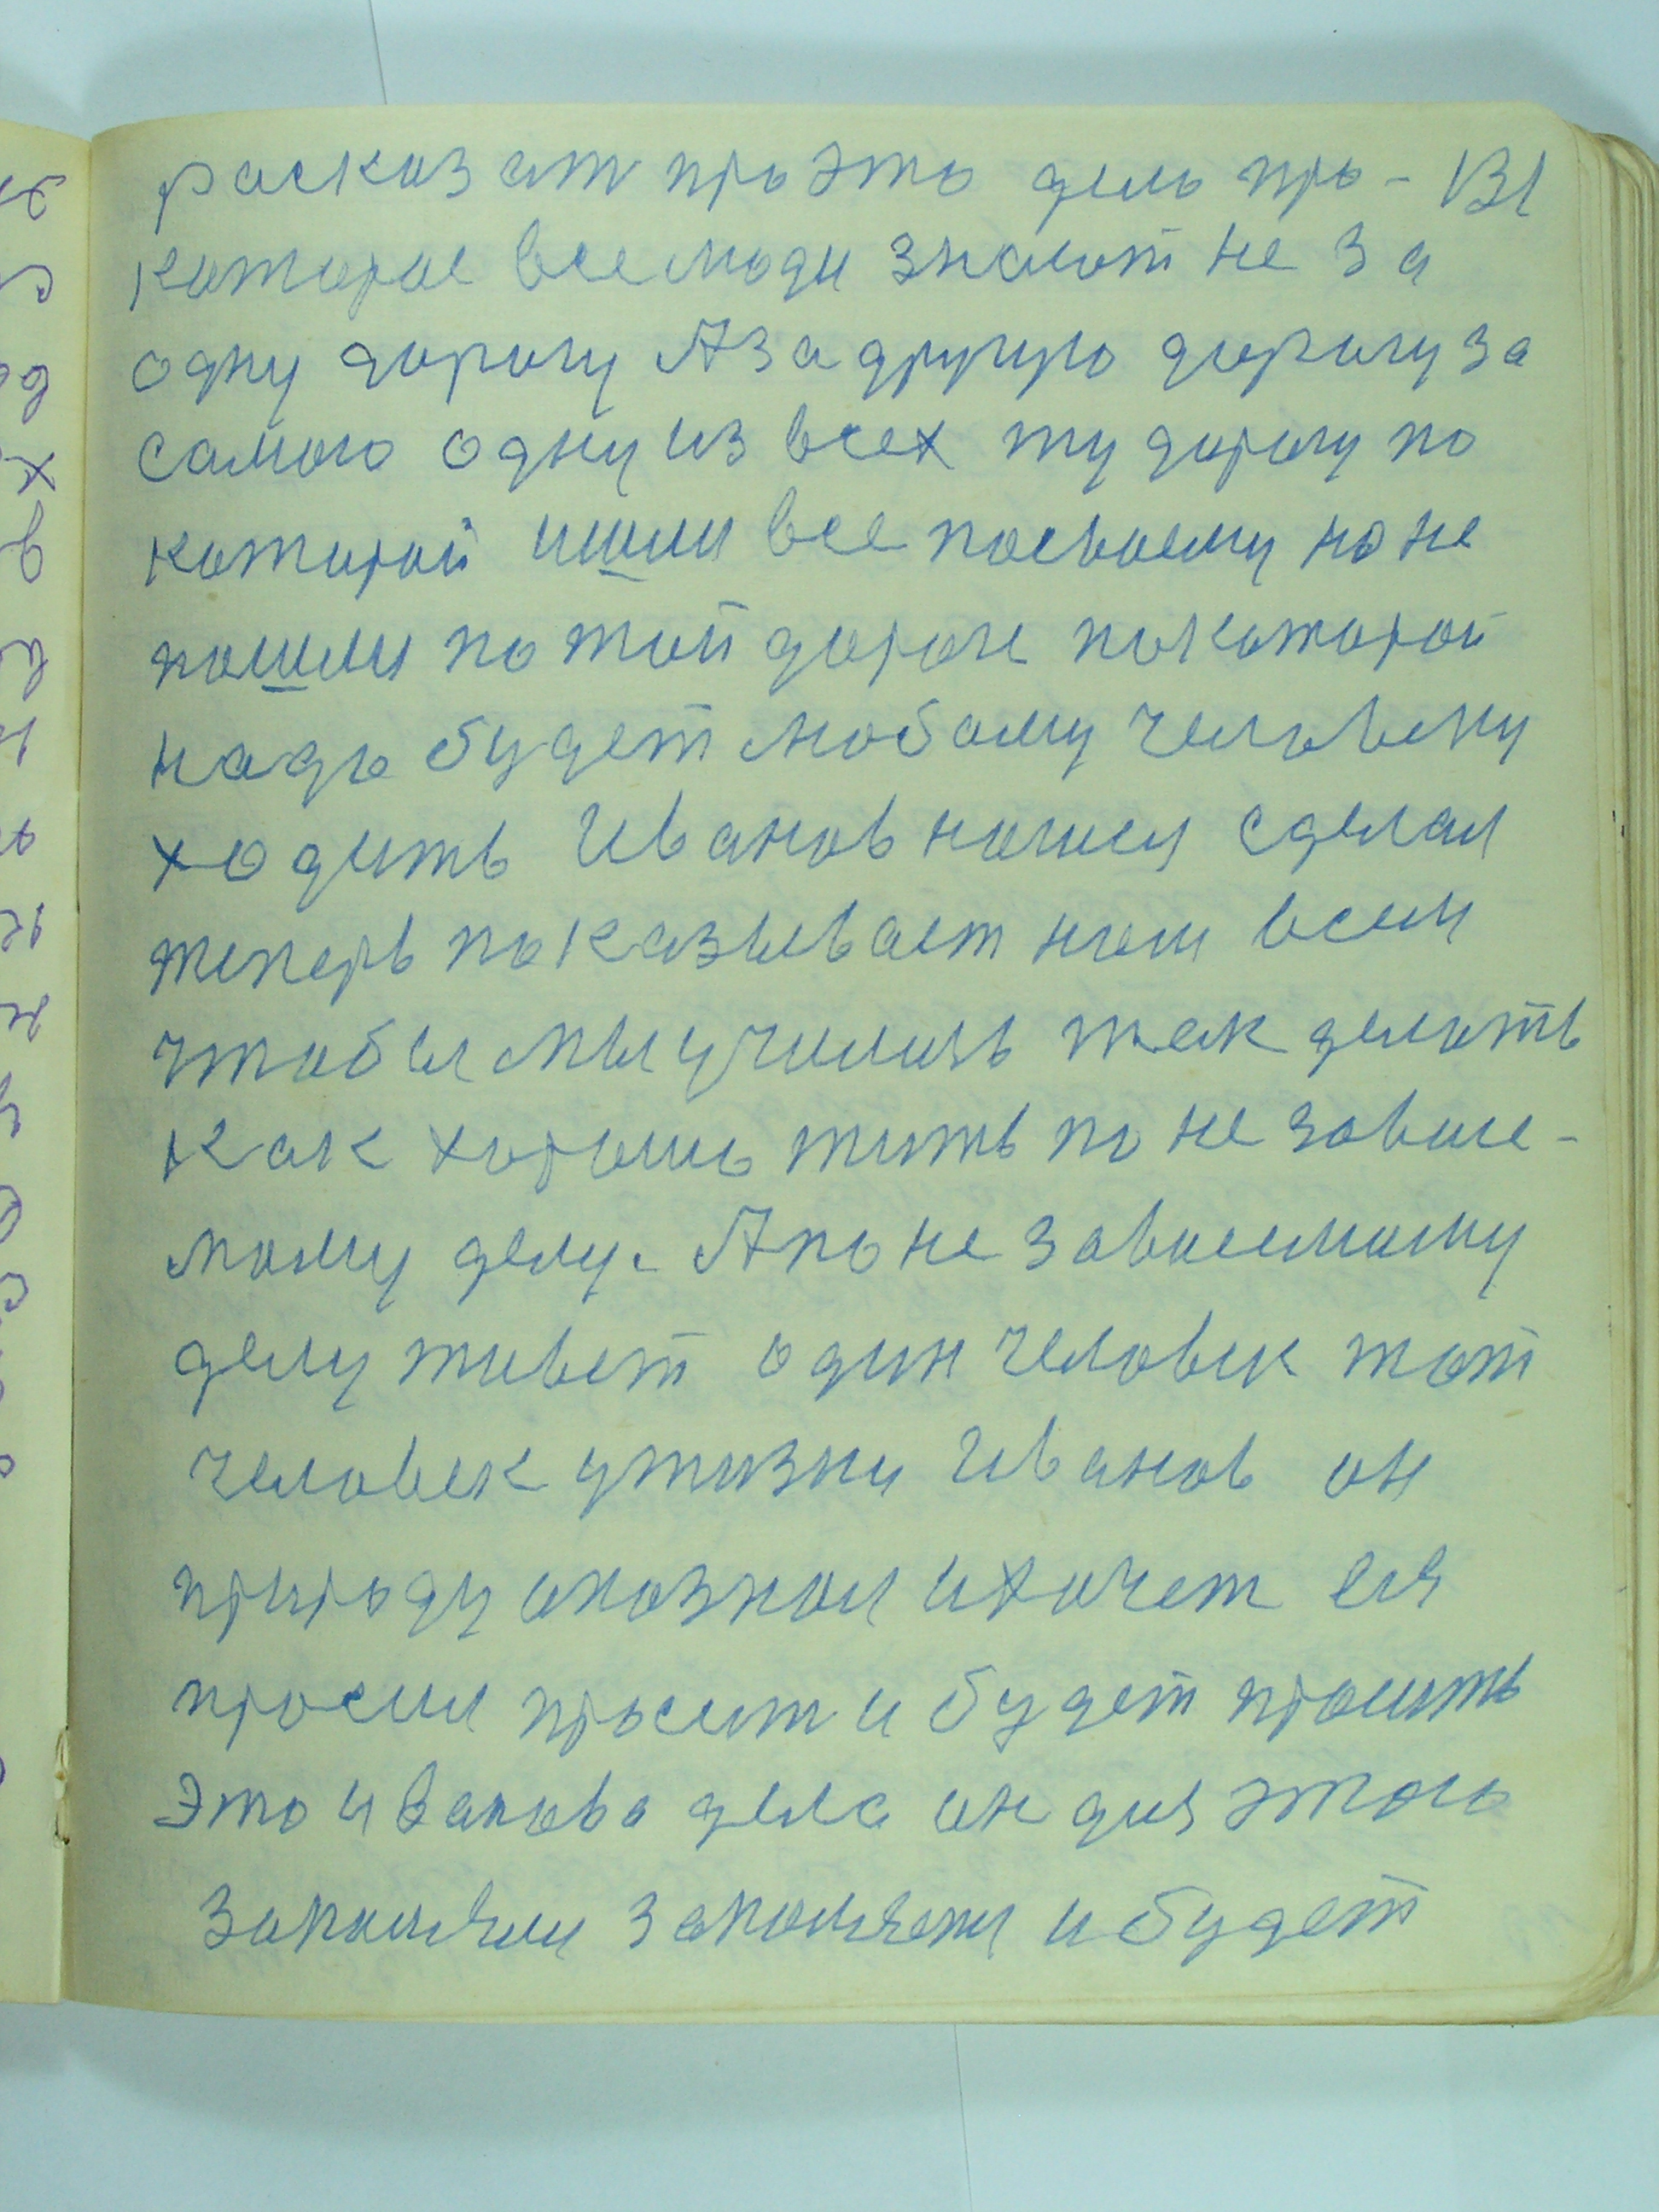 расказат про это дело про- 131
которое все люди знают не за
одну дорогу А за другую дорогу за
самою одну из всех ту дорогу по
которой ишли все посвоему но не
пошли по той дороге покоторой
надо будет любому человеку
ходить Иванов нашел сделал
теперь показывает нам всем
чтобы мы училизь так делать
как хорошо жить по не завысе-
мому делу. А по не зависемому
делу живет один человек тот
человек ужизни Иванов он
природу опознал и хочет ея
просил просит и будет просить
Это иванова дела он для этого
закончил закончен и будет